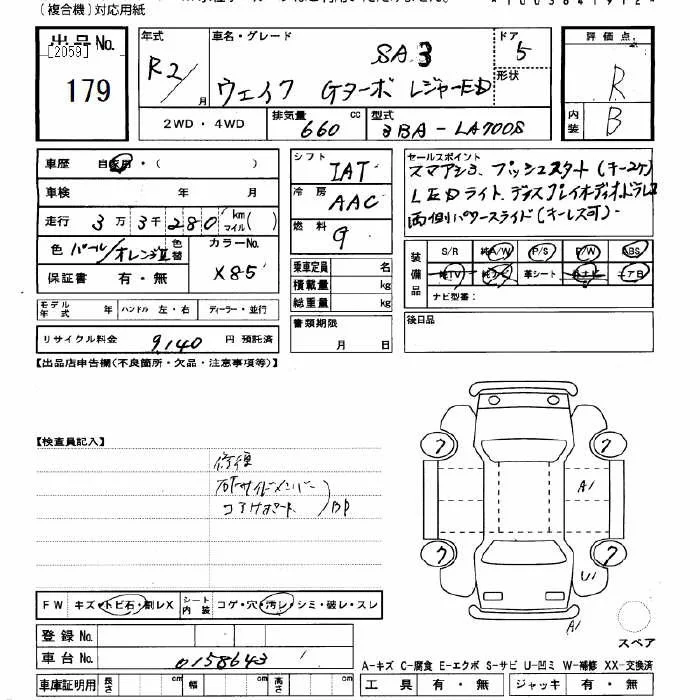 (複合機)対応用紙
出品No.
[2059]
179
年式
R2/
月
車名・グレード
SA3
ウェイク Gターボ レジャーED
ドア
5
形状
2WD・4WD
排気量
660
cc
型式
3BA-LA700S
評価点
R
内装
B
車歴 自家用・( )
車検 年 月
走行 3万3千280 km マイル( )
色 パール/オレンジⅡ
色替
カラーNo.
X85
保証書 有・無
モデル年式 年 ハンドル 左・右 ディーラー・並行
リサイクル料金 9,140 円 預託済
シフト
IAT
冷房
AAC
燃料
9
乗車定員 名
積載量 kg
総重量 kg
書類期限
月 日
セールスポイント
スマアシ3、プッシュスタート(キー2ケ)
LEDライト、ディスプレイオーディオ、ドラレコ
両側パワースライド(キーレス可)-
装備品
S/R 純A/W P/S P/W ABS
純TV 革シート エアB
ナビ型番:
後日品
【出品店申告欄(不良箇所・欠品・注意事項等)】
【検査員記入】
修復
右Fサイドメンバー
コアサポート
BP
7 7
A1
7 7
U1
A1
スペア
FW キズ・トビ石・刷レX シート内装 コゲ・穴・汚レ・シミ・破レ・スレ
登録No.
車台No. 0158643
車庫証明用 長さ cm 幅 cm 高さ cm
A-キズ C-腐食 E-エクボ S-サビ U-凹ミ W-補修 XX-交換済
工具 有・無 ジャッキ 有・無